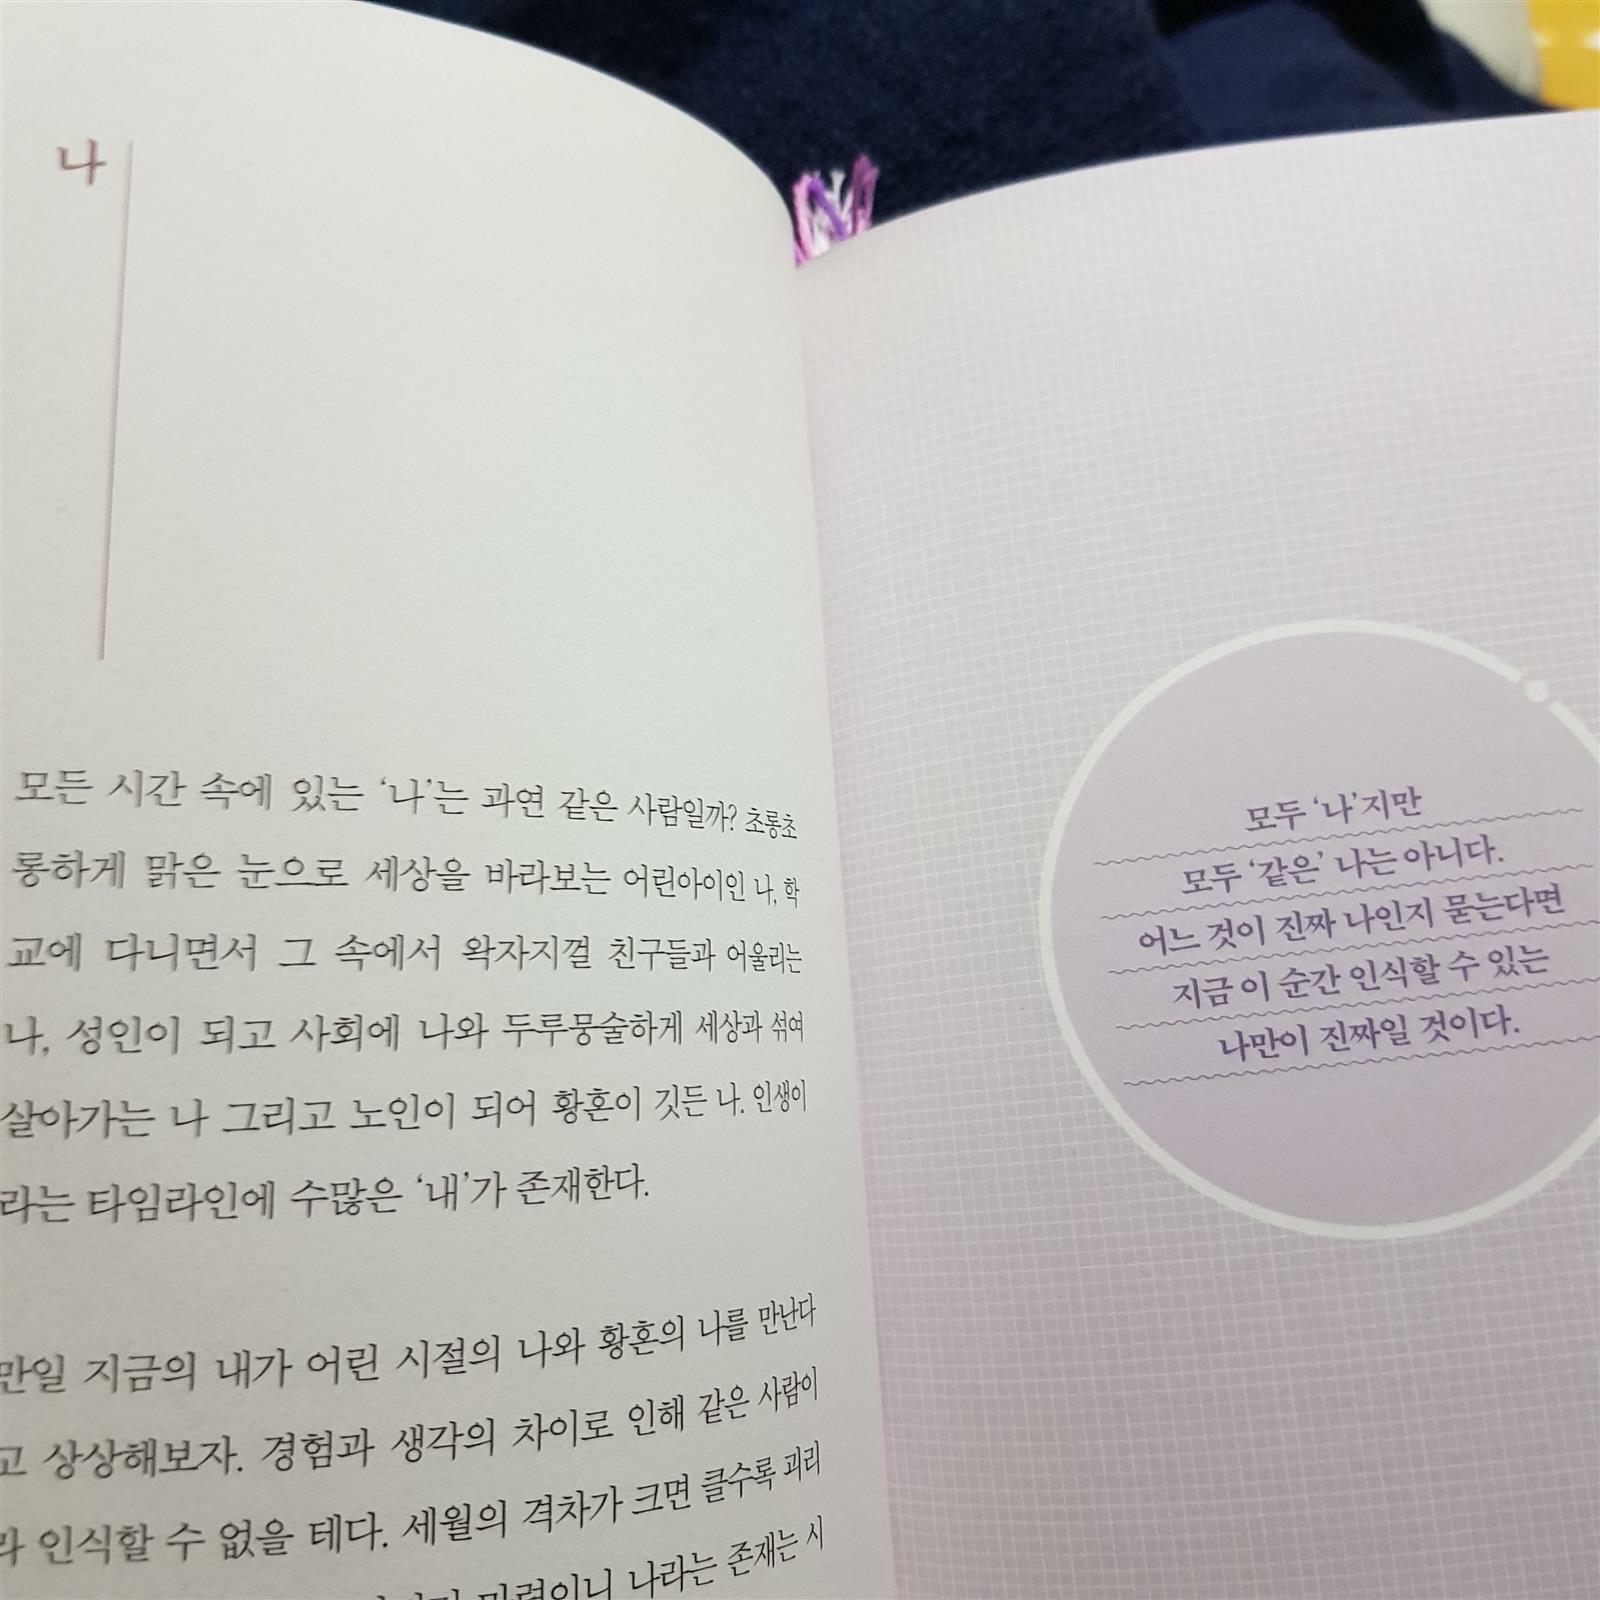 나
모든 시간 속에 있는 ‘나’는 과연 같은 사람일까? 초롱초
롱하게 맑은 눈으로 세상을 바라보는 어린아이인 나, 학
교에 다니면서 그 속에서 왁자지껄 친구들과 어울리는
나, 성인이 되고 사회에 나와 두루뭉술하게 세상과 섞여
살아가는 나 그리고 노인이 되어 황혼이 깃든 나. 인생이
라는 타임라인에 수많은 ‘내’가 존재한다.
만일 지금의 내가 어린 시절의 나와 황혼의 나를 만난다
고 상상해보자. 경험과 생각의 차이로 인해 같은 사람이
라 인식할 수 없을 테다. 세월의 격차가 크면 클수록 괴리
마련이니 나라는 존재는 시
모두 ‘나’지만
모두 ‘같은’ 나는 아니다.
어느 것이 진짜 나인지 묻는다면
지금 이 순간 인식할 수 있는
나만이 진짜일 것이다.